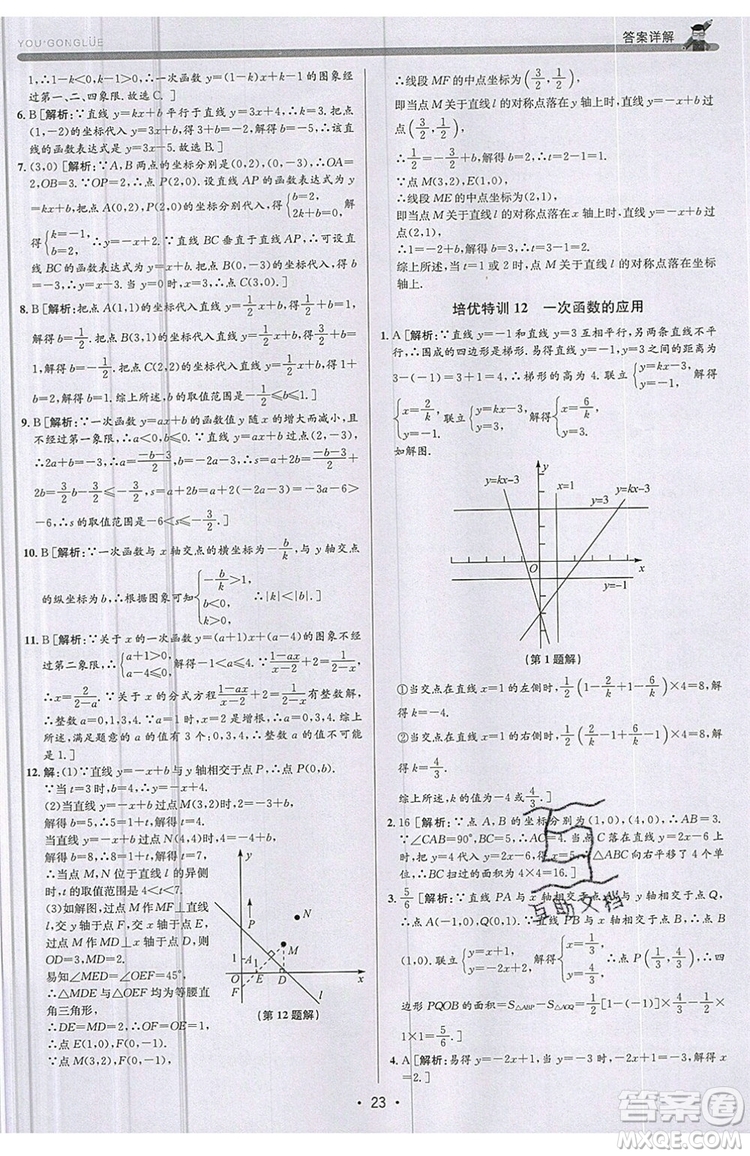 YOU·GONGLÜE
答案详解
1,∴1-k<0,∴-k>0,∴一次函数 y=(1-k)x+k 的图象经
过第一、二、四象限.故选 C. ]
6. B [解析:∵直线 y=kx+b 平行于直线 y=3x+4,把点
(1,-2)的坐标代入 y=3x+b,得 3+b=-2,∴b=-5,故该直
线的函数表达式为 y=3x-5.故选 B. ]
7. (3,0) [解析:∵A,B 两点的坐标分别是(0,2),(0,-3),∴OA=
2,OB=3.∵点 P(2,0),∴OP=2.设直线 AP 的函数表达式为
y=kx+b,将点 A(0,2),P(2,0)的坐标分别代入,得{b=2, 2k+b=0, 解
得{k=-1, b=2, ∴y=-x+2.∵直线 BC 垂直于直线 AP,∴可设直
线 BC 的函数表达式为 y=x+n,将 B(0,-3)的坐标代入,得
n=-3,∴y=x-3.当 y=0 时,x=3,∴点 C(3,0). ]
8. B [解析:把点 A(1,1)的坐标代入 y=1/2x+b,得 1/2+b=1,解得
b=1/2;把点 B(3,1)的坐标代入 y=1/2x+b,得 3/2+b=1,解得 b=
-1/2;把点 C(2,2)的坐标代入 y=1/2x+b,得 1+b=2,
解得 b=1.综上所述,b 的取值范围是-1/2≤b≤1. ]
9. B [解析:∵一次函数 y=ax+b 的函数值 y 随 x 的增大而减小,且
不经过第一象限,∴a<0,b≤0.∵直线 y=ax+b 过点(2,-3),
∴2a+b=-3,∴a=(-b-3)/2,b=-2a-3,∴s=a+2b=(-b-3)/2+
2b=3/2b-3/2≤-3/2,s=a+2b=a+2(-2a-3)=-3a-6>
-6,∴s 的取值范围是-6<s≤-3/2. ]
10. B [解析:∵一次函数与 x 轴交点的横坐标为-b/k,与 y 轴交点
的纵坐标为 b,∴由图象可知{-b/k>1, b<0, k<0, ∴|b|>|k|. ]
11. B [解析:∵关于 x 的一次函数 y=(a+1)x+(a-4)的图象不经
过第二象限,∴{a+1>0, a-4≤0, 解得-1<a≤4.∵(1-ax)/(x-2)+2=1/(2-x),
∴x=2/(2-a).∵关于 x 的分式方程(1-ax)/(x-2)+2=1/(2-x)有整数解,
∴整数 a=0,1,3,4.∵当 a=1 时,x=2 是增根,∴a=0,3,4.综上
所述,满足题意的 a 的值有 3 个:0,3,4,∴整数 a 的值不可能
是 1. ]
12. 解:(1)∵直线 y=-x+b 与 y 轴相交于点 P,∴点 P(0,b).
∵当 t=3 时,b=4,∴y=-x+4.
(2)当直线 y=-x+b 过点 M(3,2)时,2=-3+b,
解得 b=5,∴5=1+t,∴t=4;
当直线 y=-x+b 过点 N(4,4)时,4=-4+b,
解得 b=8,∴8=1+t,∴t=7.
故当点 M,N 位于直线 l 的异侧
时,t 的取值范围是 4<t<7.
(3)如解图,过点 M 作 MF⊥直线
l,交 y 轴于点 F,交 x 轴于点 E,
过点 M 作 MD⊥x 轴于点 D,∴OD=
3,MD=2.
易知∠MED=∠OEF=45°,
∴△MDE 与△OEF 均为等腰直
角三角形,
∴DE=MD=2,OE=OF=1,
∴点 E(1,0),F(0,-1).
y
P
N
M
1
A
O
1
E
D
F
x
l
(第 12 题解)
∵点 M(3,2),F(0,-1),
∴线段 MF 的中点坐标为(3/2,1/2),
即当点 M 关于直线 l 的对称点落在 y 轴上时,直线 y=-x+b
过点(3/2,1/2),
∴1/2=-3/2+b,解得 b=2,
∴2=1+t,解得 t=1.
∵点 M(3,2),E(1,0),
∴线段 ME 的中点坐标为(2,1),
即当点 M 关于直线 l 的对称点落在 x 轴上时,直线 y=-x+b
过点(2,1),
∴1=-2+b,解得 b=3,∴3=1+t,解得 t=2.
综上所述,当 t=1 或 2 时,点 M 关于直线 l 的对称点落在坐标
轴上.
培优特训 12 一次函数的应用
1. A [解析:∵直线 y=-1 和直线 y=3 互相平行,另两条直线不平
行,∴围成的四边形是梯形.∵直线 y=-1 和直线 y=3 的距离为
3-(-1)=3+1=4,∴梯形的高为 4.联立{y=kx-3, y=-1, 解得
{x=2/k, y=-1. 联立{y=kx-3, y=3, 解得{x=6/k, y=3.
如解图.
y
y=kx-3
x=1
y=kx-3
y=3
O
x
y=-1
(第 1 题解)
①当交点在直线 x=1 的左侧时,1/2(1-2/k+1-6/k)×4=8,解
得 k=-4;
②当交点在直线 x=1 的右侧时,1/2(2/k-1+6/k-1)×4=8,解
得 k=4/3.
综上所述,k 的值是-4 或 4/3. ]
2. 16 [解析:∵点 A,B 的坐标分别为(1,0),(4,0),∴AB=3.
∵∠CAB=90°,BC=5,∴AC=4.当点 C 落在直线 y=2x-6 上
时,2x-6=4,解得 x=5,∴△ABC 向右平移了 4 个单
位,∴BC 扫过的面积为 4×4=16. ]
3. 5/6 [解析:∵直线 PA 与 x 轴交于点 A,与 y 轴交于点 Q,
∴点 A(-1,0),Q(0,1).∵直线 PB 与 x 轴交于点 B,∴点 B
(1,0).由{y=x+1, y=-2x+2, 解得{x=1/3, y=4/3, ∴点 P(1/3,4/3),∴四
边形 PQOB 的面积=S△ABP-S△AOQ=1/2×(1+1)×4/3-1/2×
1×1=5/6. ]
4. A [解析:易得 y=-x+2,y=-2x+1,∴-x+2=-2x+1,
· 23 ·
互助文档
答案圈
MXQE.COM